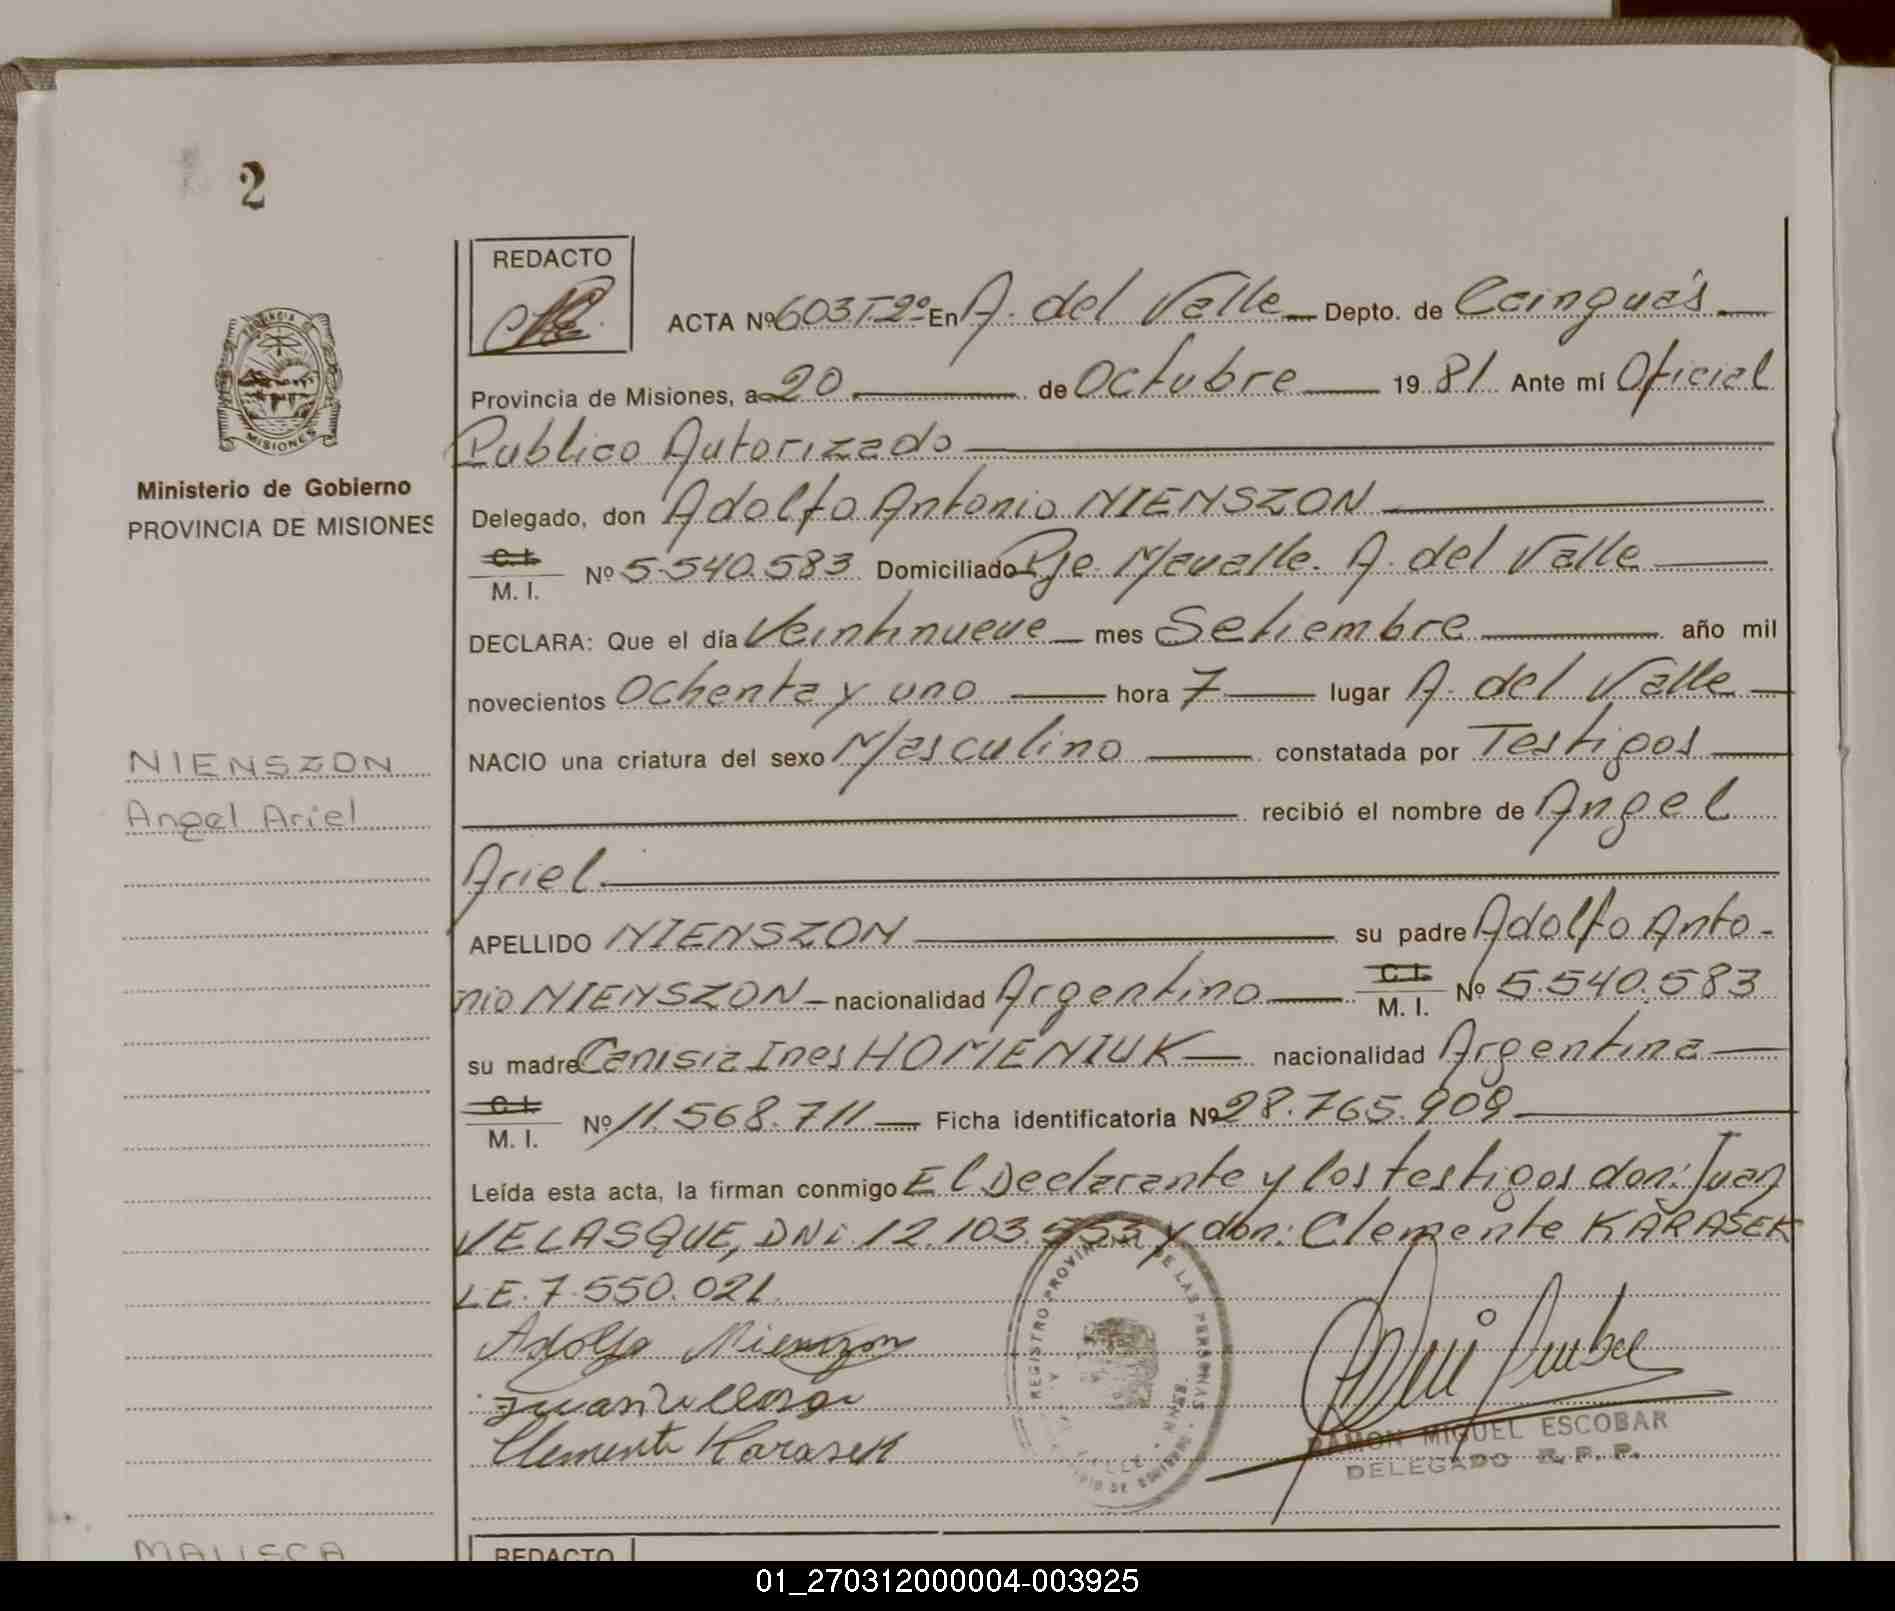 2
REDACTO
ACTA Nº 603 Tº 2º En A. del Valle Depto. de Cainguás
Provincia de Misiones, a 20 de Octubre 1981 Ante mí Oficial
Publico Autorizado
Ministerio de Gobierno
PROVINCIA DE MISIONES
Delegado, don Adolfo Antonio NIENSZON
C.I.
M. I. Nº 5.540.583 Domiciliado Pje. Mavalle. A. del Valle
DECLARA: Que el día Veintinueve mes Setiembre año mil
novecientos Ochenta y uno hora 7 lugar A. del Valle
NACIO una criatura del sexo Masculino constatada por Testigos
NIENSZON
Angel Ariel
recibió el nombre de Angel
Ariel.
APELLIDO NIENSZON su padre Adolfo Anto-
nio NIENSZON nacionalidad Argentino C.I. M. I. Nº 5.540.583
su madre Canisia Ines HOMENIUK nacionalidad Argentina
C.I.
M. I. Nº 11.568.711 Ficha identificatoria Nº 28.765.909
Leída esta acta, la firman conmigo El Declarante y los testigos don: Juan
VELASQUE, DNI 12.103.553 y don: Clemente KARASEK
LE. 7.550.021
Adolfo Nienszon
Juan
Clemente Karasek
REGISTRO PROVINCIAL DE LAS PERSONAS
VALLE
MISIONES
RAMON MIGUEL ESCOBAR
DELEGADO R. P. P.
REDACTO
01_270312000004-003925